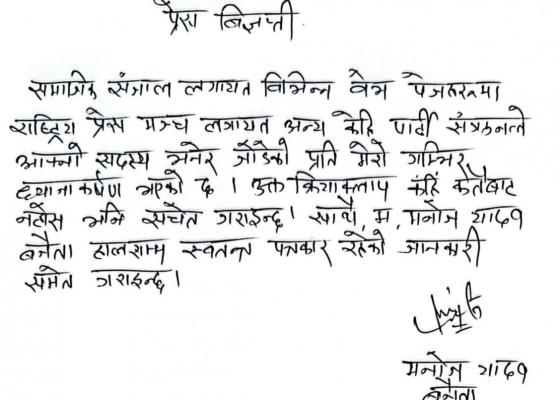 प्रेस विज्ञप्ती
समाजिक संजाल लगायत विभिन्न वेभ पेजहरूमा
राष्ट्रिय प्रेस मञ्च लगायत अन्य केहि पार्टी संगठनले
आफ्नो सदस्य भनेर जोडेको प्रति मेरो गम्भिर
ध्यानाकर्षण भएको छ । उक्त क्रियाकलाप कहिं कतैबाट
नहोस भनि सचेत गराइन्छ । साथै, म, मनोज यादव
बनैता हालसम्म स्वतन्त पत्रकार रहेको जानकारी
समेत गराइन्छ ।
मनोज यादव
बनैता